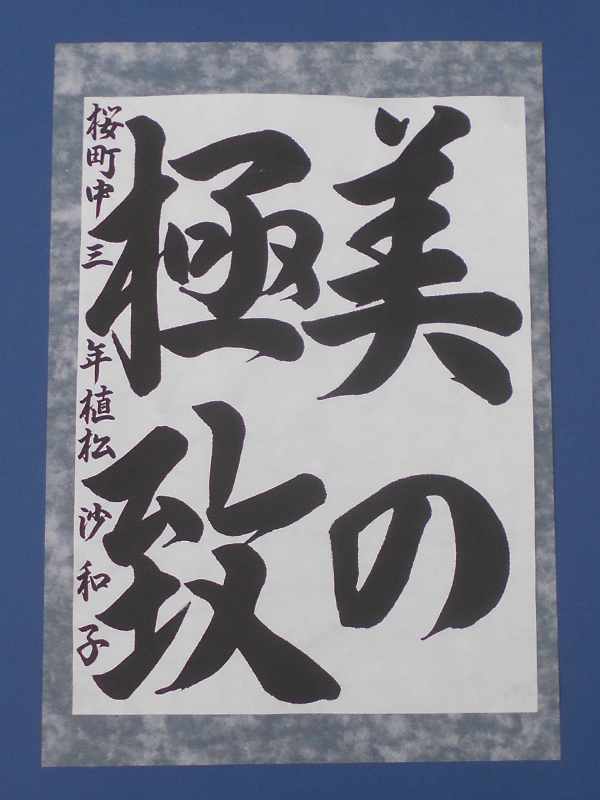 美の
極致
桜町中三年植松沙和子